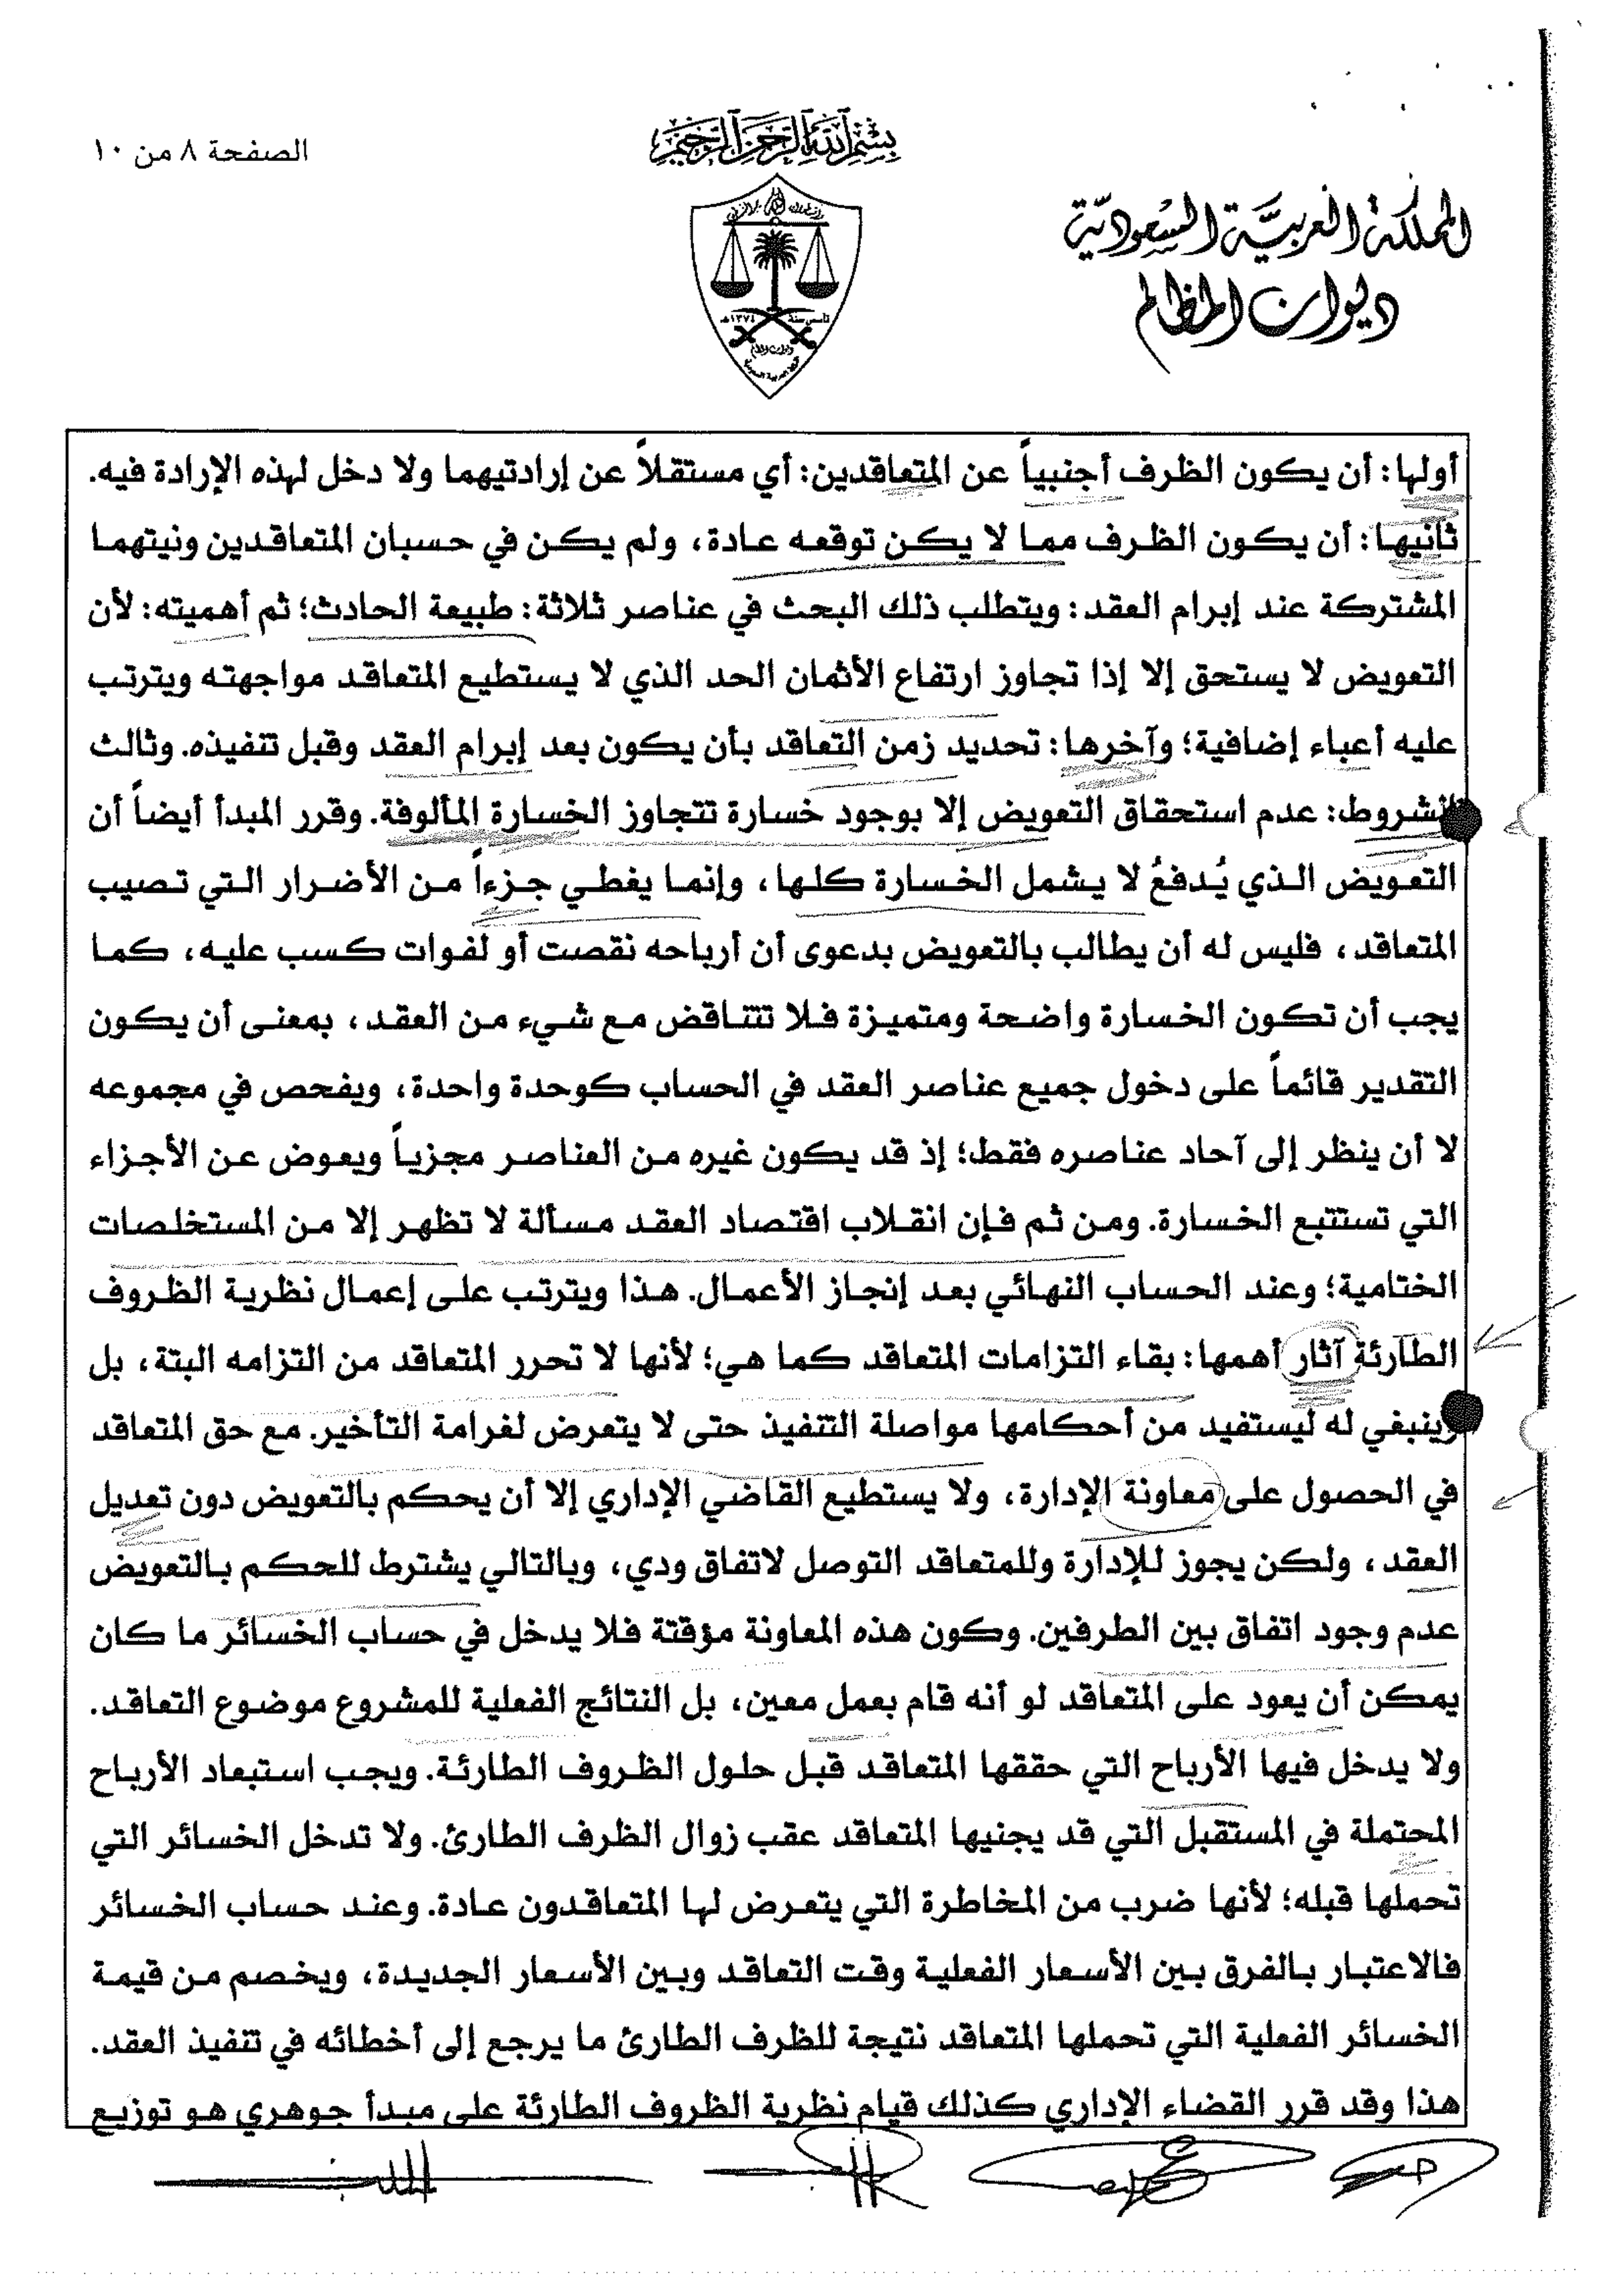 الصفحة ٨ من ١٠
بسم الله الرحمن الرحيم
المملكة العربية السعودية
ديوان المظالم
تأسس سنة ١٣٧٤هـ
ديوان المظالم
المملكة العربية السعودية
أولها: أن يكون الظرف أجنبياً عن المتعاقدين: أي مستقلاً عن إرادتيهما ولا دخل لهذه الإرادة فيه.
ثانيها: أن يكون الظرف مما لا يكن توقعه عادة، ولم يكن في حسبان المتعاقدين ونيتهما
المشتركة عند إبرام العقد: ويتطلب ذلك البحث في عناصر ثلاثة: طبيعة الحادث؛ ثم أهميته: لأن
التعويض لا يستحق إلا إذا تجاوز ارتفاع الأثمان الحد الذي لا يستطيع المتعاقد مواجهته ويترتب
عليه أعباء إضافية؛ وآخرها: تحديد زمن التعاقد بأن يكون بعد إبرام العقد وقبل تنفيذه. وثالث
الشروط: عدم استحقاق التعويض إلا بوجود خسارة تتجاوز الخسارة المألوفة. وقرر المبدأ أيضاً أن
التعويض الذي يُدفعُ لا يشمل الخسارة كلها، وإنما يغطي جزءاً من الأضرار التي تصيب
المتعاقد، فليس له أن يطالب بالتعويض بدعوى أن أرباحه نقصت أو لفوات كسب عليه، كما
يجب أن تكون الخسارة واضحة ومتميزة فلا تتناقض مع شيء من العقد، بمعنى أن يكون
التقدير قائماً على دخول جميع عناصر العقد في الحساب كوحدة واحدة، ويفحص في مجموعه
لا أن ينظر إلى آحاد عناصره فقط؛ إذ قد يكون غيره من العناصر مجزياً ويعوض عن الأجزاء
التي تستتبع الخسارة. ومن ثم فإن انقلاب اقتصاد العقد مسألة لا تظهر إلا من المستخلصات
الختامية؛ وعند الحساب النهائي بعد إنجاز الأعمال. هذا ويترتب على إعمال نظرية الظروف
الطارئة آثار أهمها: بقاء التزامات المتعاقد كما هي؛ لأنها لا تحرر المتعاقد من التزامه البتة، بل
وينبغي له ليستفيد من أحكامها مواصلة التنفيذ حتى لا يتعرض لغرامة التأخير. مع حق المتعاقد
في الحصول على معاونة الإدارة، ولا يستطيع القاضي الإداري إلا أن يحكم بالتعويض دون تعديل
العقد، ولكن يجوز للإدارة وللمتعاقد التوصل لاتفاق ودي، وبالتالي يشترط للحكم بالتعويض
عدم وجود اتفاق بين الطرفين. وكون هذه المعاونة مؤقتة فلا يدخل في حساب الخسائر ما كان
يمكن أن يعود على المتعاقد لو أنه قام بعمل معين، بل النتائج الفعلية للمشروع موضوع التعاقد.
ولا يدخل فيها الأرباح التي حققها المتعاقد قبل حلول الظروف الطارئة. ويجب استبعاد الأرباح
المحتملة في المستقبل التي قد يجنيها المتعاقد عقب زوال الظرف الطارئ. ولا تدخل الخسائر التي
تحملها قبله؛ لأنها ضرب من المخاطرة التي يتعرض لها المتعاقدون عادة. وعند حساب الخسائر
فالاعتبار بالفرق بين الأسعار الفعلية وقت التعاقد وبين الأسعار الجديدة، ويخصم من قيمة
الخسائر الفعلية التي تحملها المتعاقد نتيجة للظرف الطارئ ما يرجع إلى أخطائه في تنفيذ العقد.
هذا وقد قرر القضاء الإداري كذلك قيام نظرية الظروف الطارئة على مبدأ جوهري هو توزيع